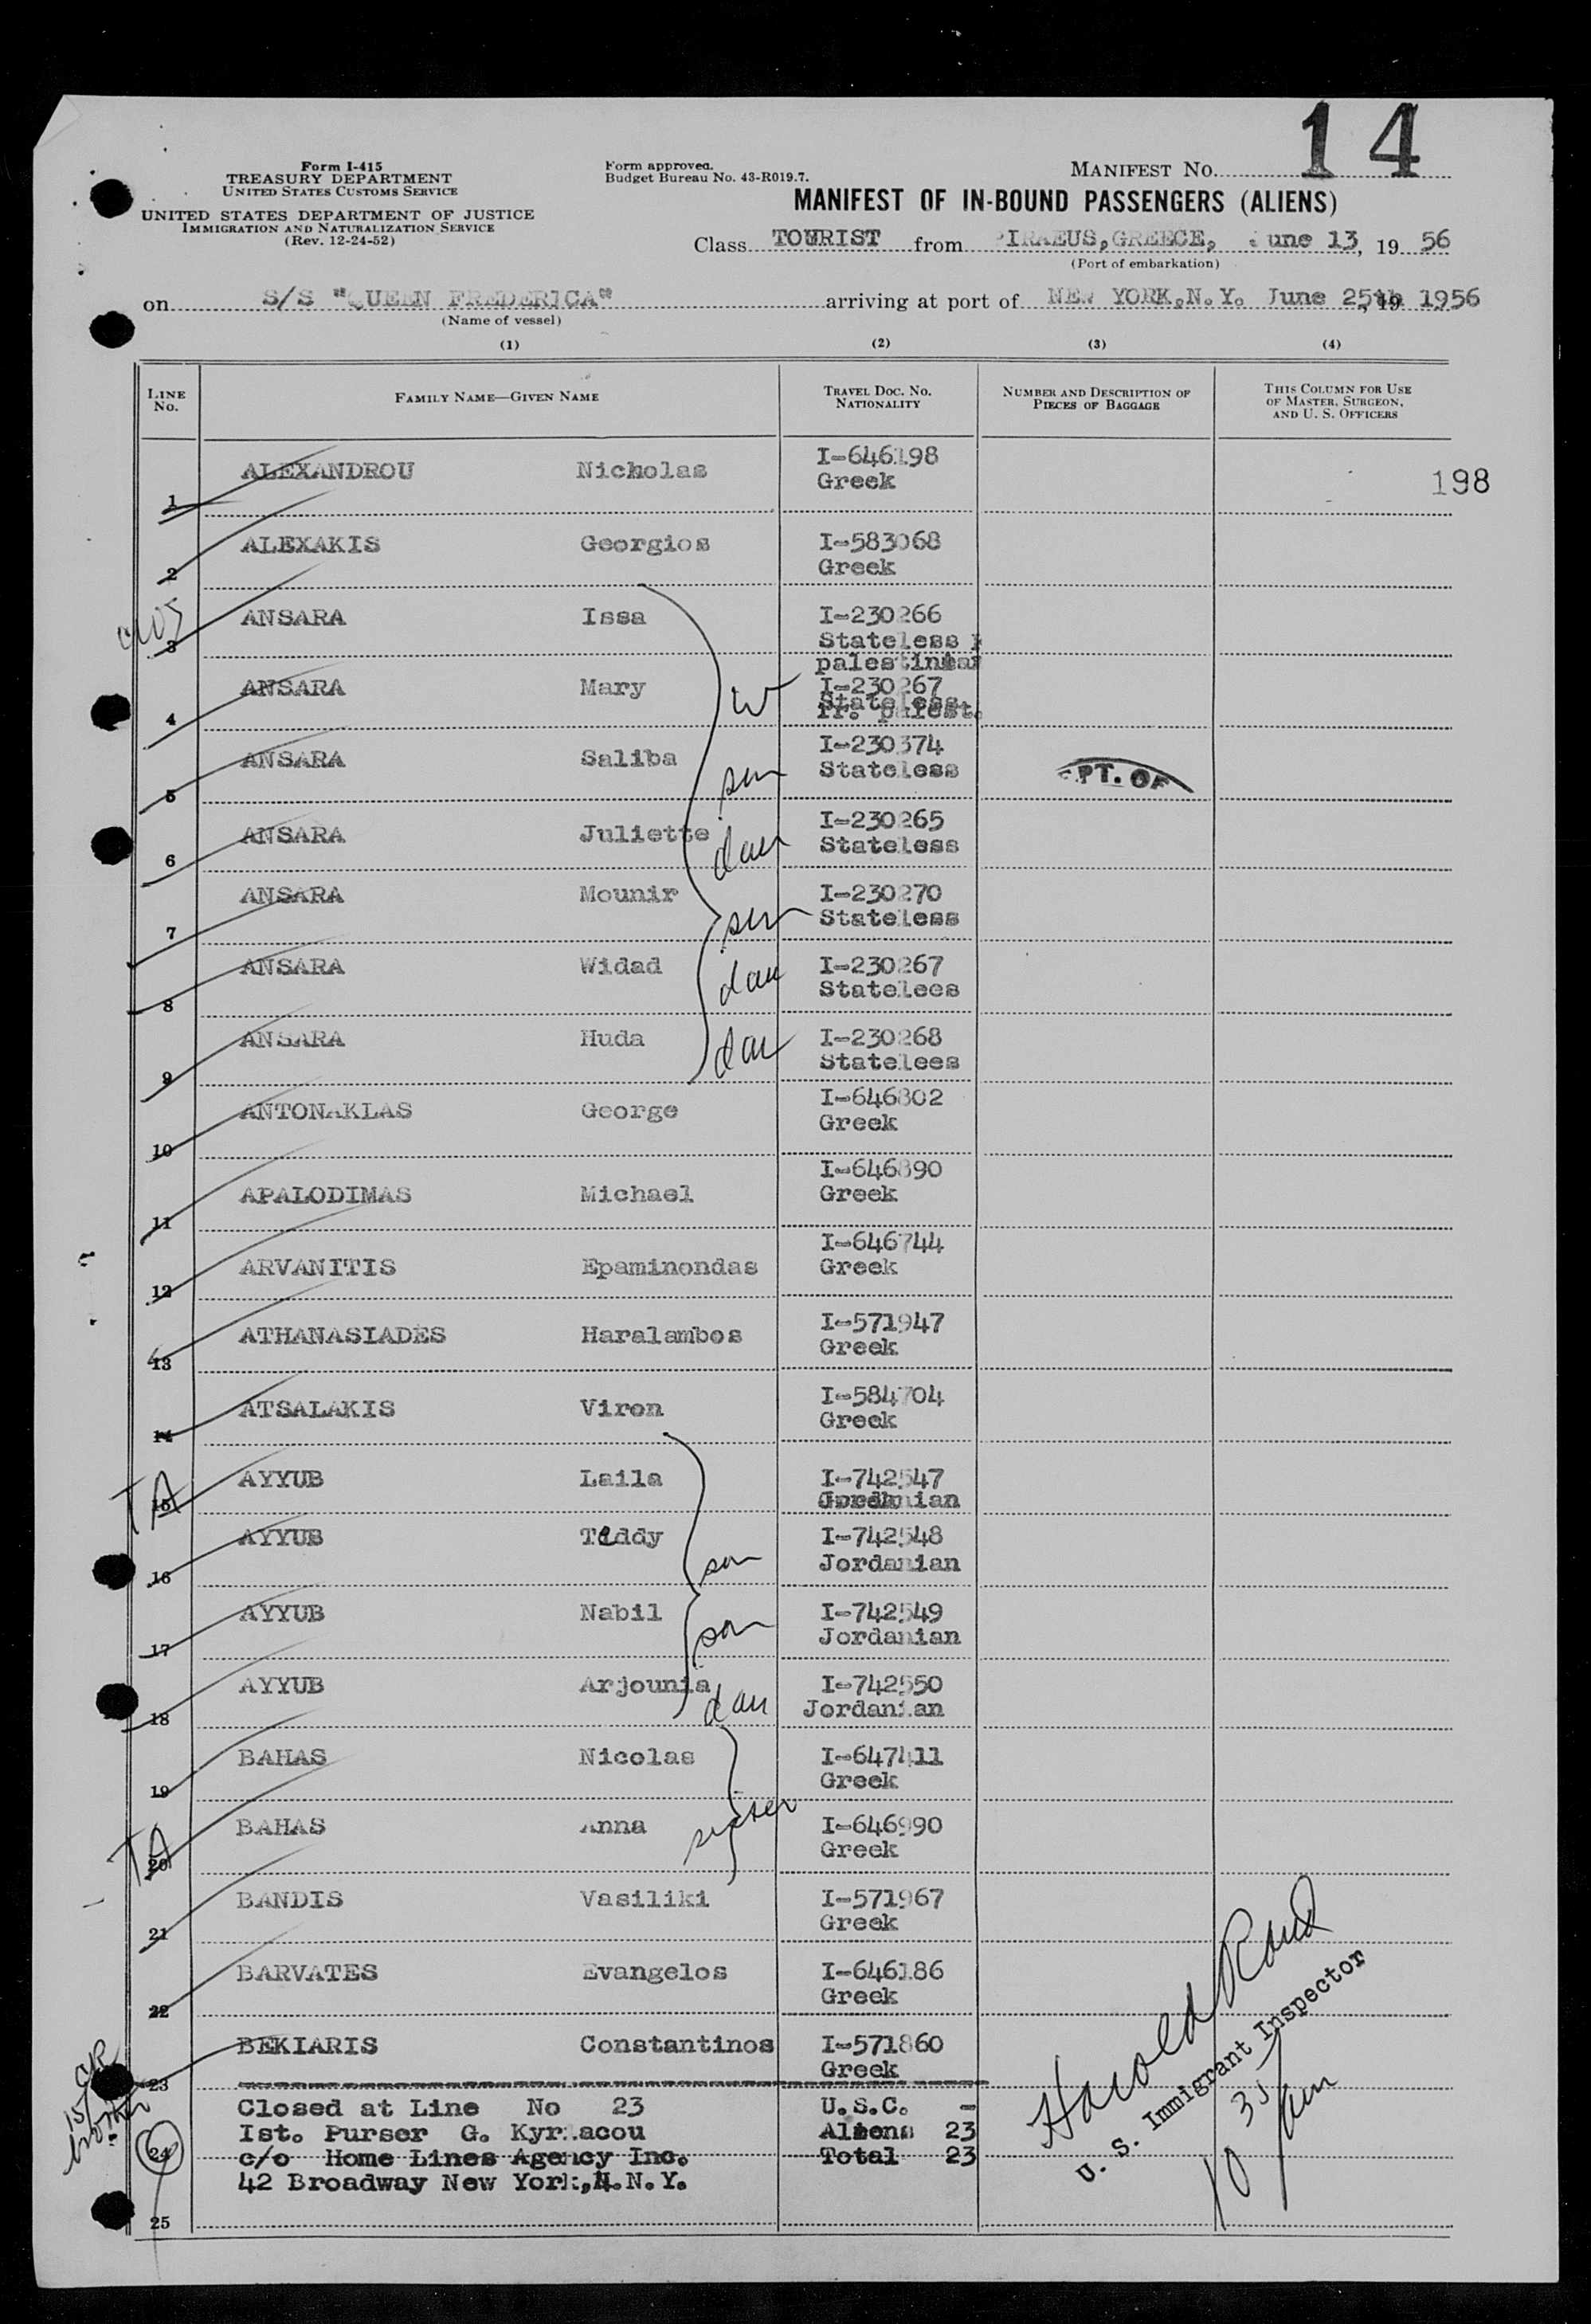 14
Form I-415
TREASURY DEPARTMENT
UNITED STATES CUSTOMS SERVICE
UNITED STATES DEPARTMENT OF JUSTICE
IMMIGRATION AND NATURALIZATION SERVICE
(Rev. 12-24-52)
Form approved.
Budget Bureau No. 43-R019.7.
MANIFEST NO.
MANIFEST OF IN-BOUND PASSENGERS (ALIENS)
Class TOURIST from PIRAEUS,GREECE, June 13, 19 56
(Port of embarkation)
on S/S "QUEEN FREDERICA" arriving at port of NEW YORK,N.Y. June 25th 1956
(Name of vessel)
(1) (2) (3) (4)
LINE No. FAMILY NAME—GIVEN NAME TRAVEL DOC. NO. NATIONALITY NUMBER AND DESCRIPTION OF PIECES OF BAGGAGE THIS COLUMN FOR USE OF MASTER, SURGEON, AND U. S. OFFICERS
1 ALEXANDROU Nicholas I-646198 Greek 198
2 ALEXAKIS Georgios I-583068 Greek
3 ANSARA Issa I-230266 Stateless palestinian
4 ANSARA Mary W I-230267 Stateless fr. palest.
5 ANSARA Saliba son I-230374 Stateless PT. OF
6 ANSARA Juliette dau I-230265 Stateless
7 ANSARA Mounir son I-230270 Stateless
8 ANSARA Widad dau I-230267 Statelees
9 ANSARA Huda dau I-230268 Statelees
10 ANTONAKLAS George I-646802 Greek
11 APALODIMAS Michael I-646890 Greek
12 ARVANITIS Epaminondas I-646744 Greek
13 ATHANASIADES Haralambos I-571947 Greek
14 ATSALAKIS Viron I-584704 Greek
TA 15 AYYUB Laila I-742547 Jordanian
16 AYYUB Teddy son I-742548 Jordanian
17 AYYUB Nabil son I-742549 Jordanian
18 AYYUB Arjounia dau I-742550 Jordanian
19 BAHAS Nicolas I-647411 Greek
TA 20 BAHAS Anna sister I-646990 Greek
21 BANDIS Vasiliki I-571967 Greek
22 BARVATES Evangelos I-646186 Greek
23 BEKIARIS Constantinos I-571860 Greek
Closed at Line No 23 U.S.C. -
24 Ist. Purser G. Kyriacou Aliens 23
c/o Home Lines Agency Inc. Total 23
42 Broadway New York,4.N.Y.
25
Harold Rand
U. S. Immigrant Inspector
10 35 am